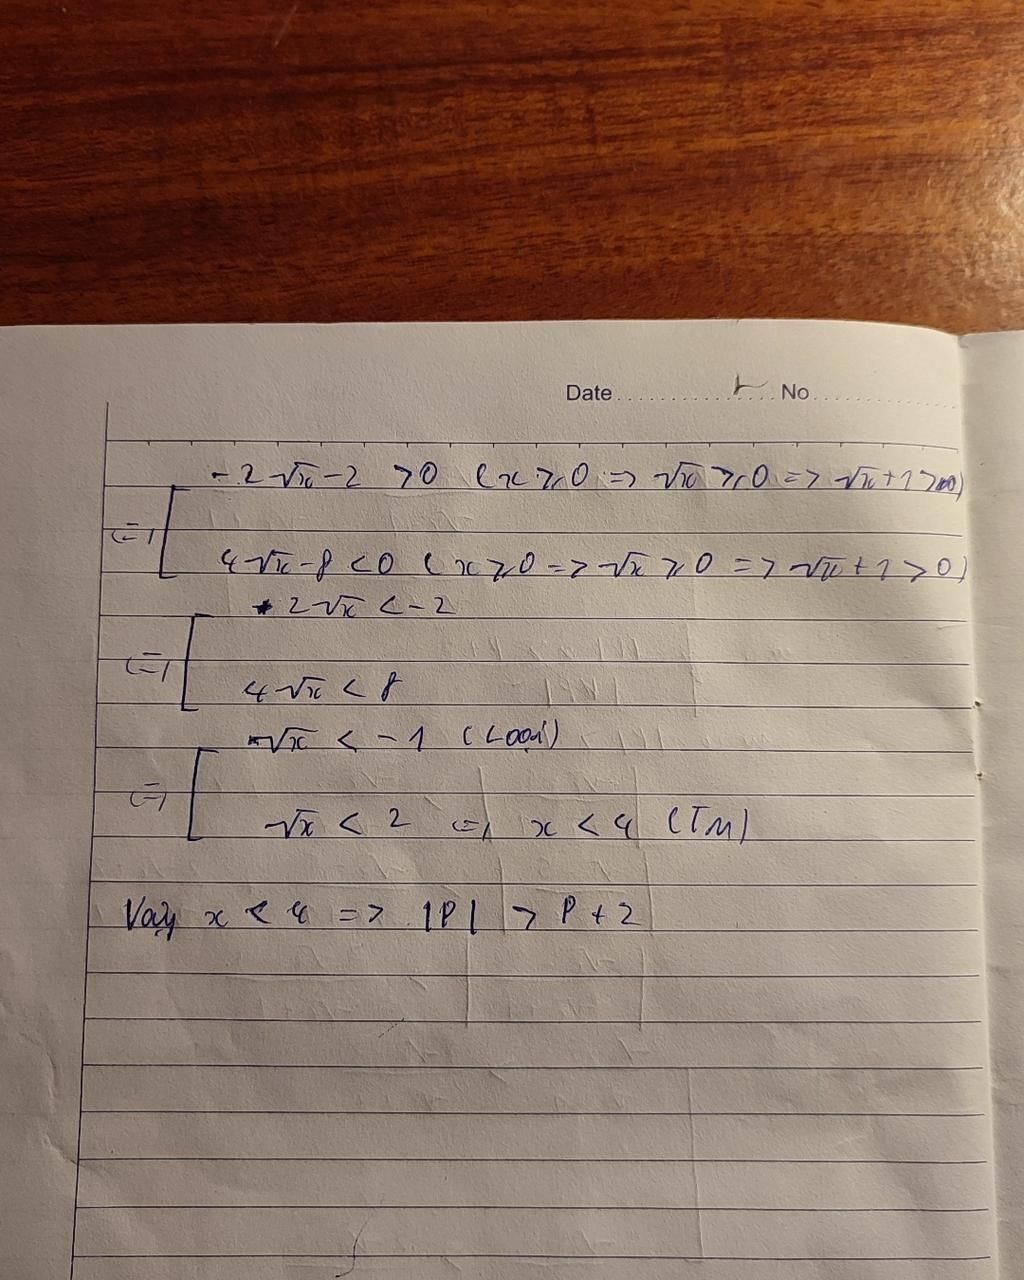 Date No
- 2√x - 2 > 0 (x ≥ 0 => √x ≥ 0 => √x + 1 > 0)
<=> [
4√x - 8 < 0 (x ≥ 0 => √x ≥ 0 => √x + 1 > 0)
2√x < - 2
<=> [
4√x < 8
√x < - 1 (Loại)
<=> [
√x < 2 <=> x < 4 (TM)
Vậy x < 4 => |P| > P + 2